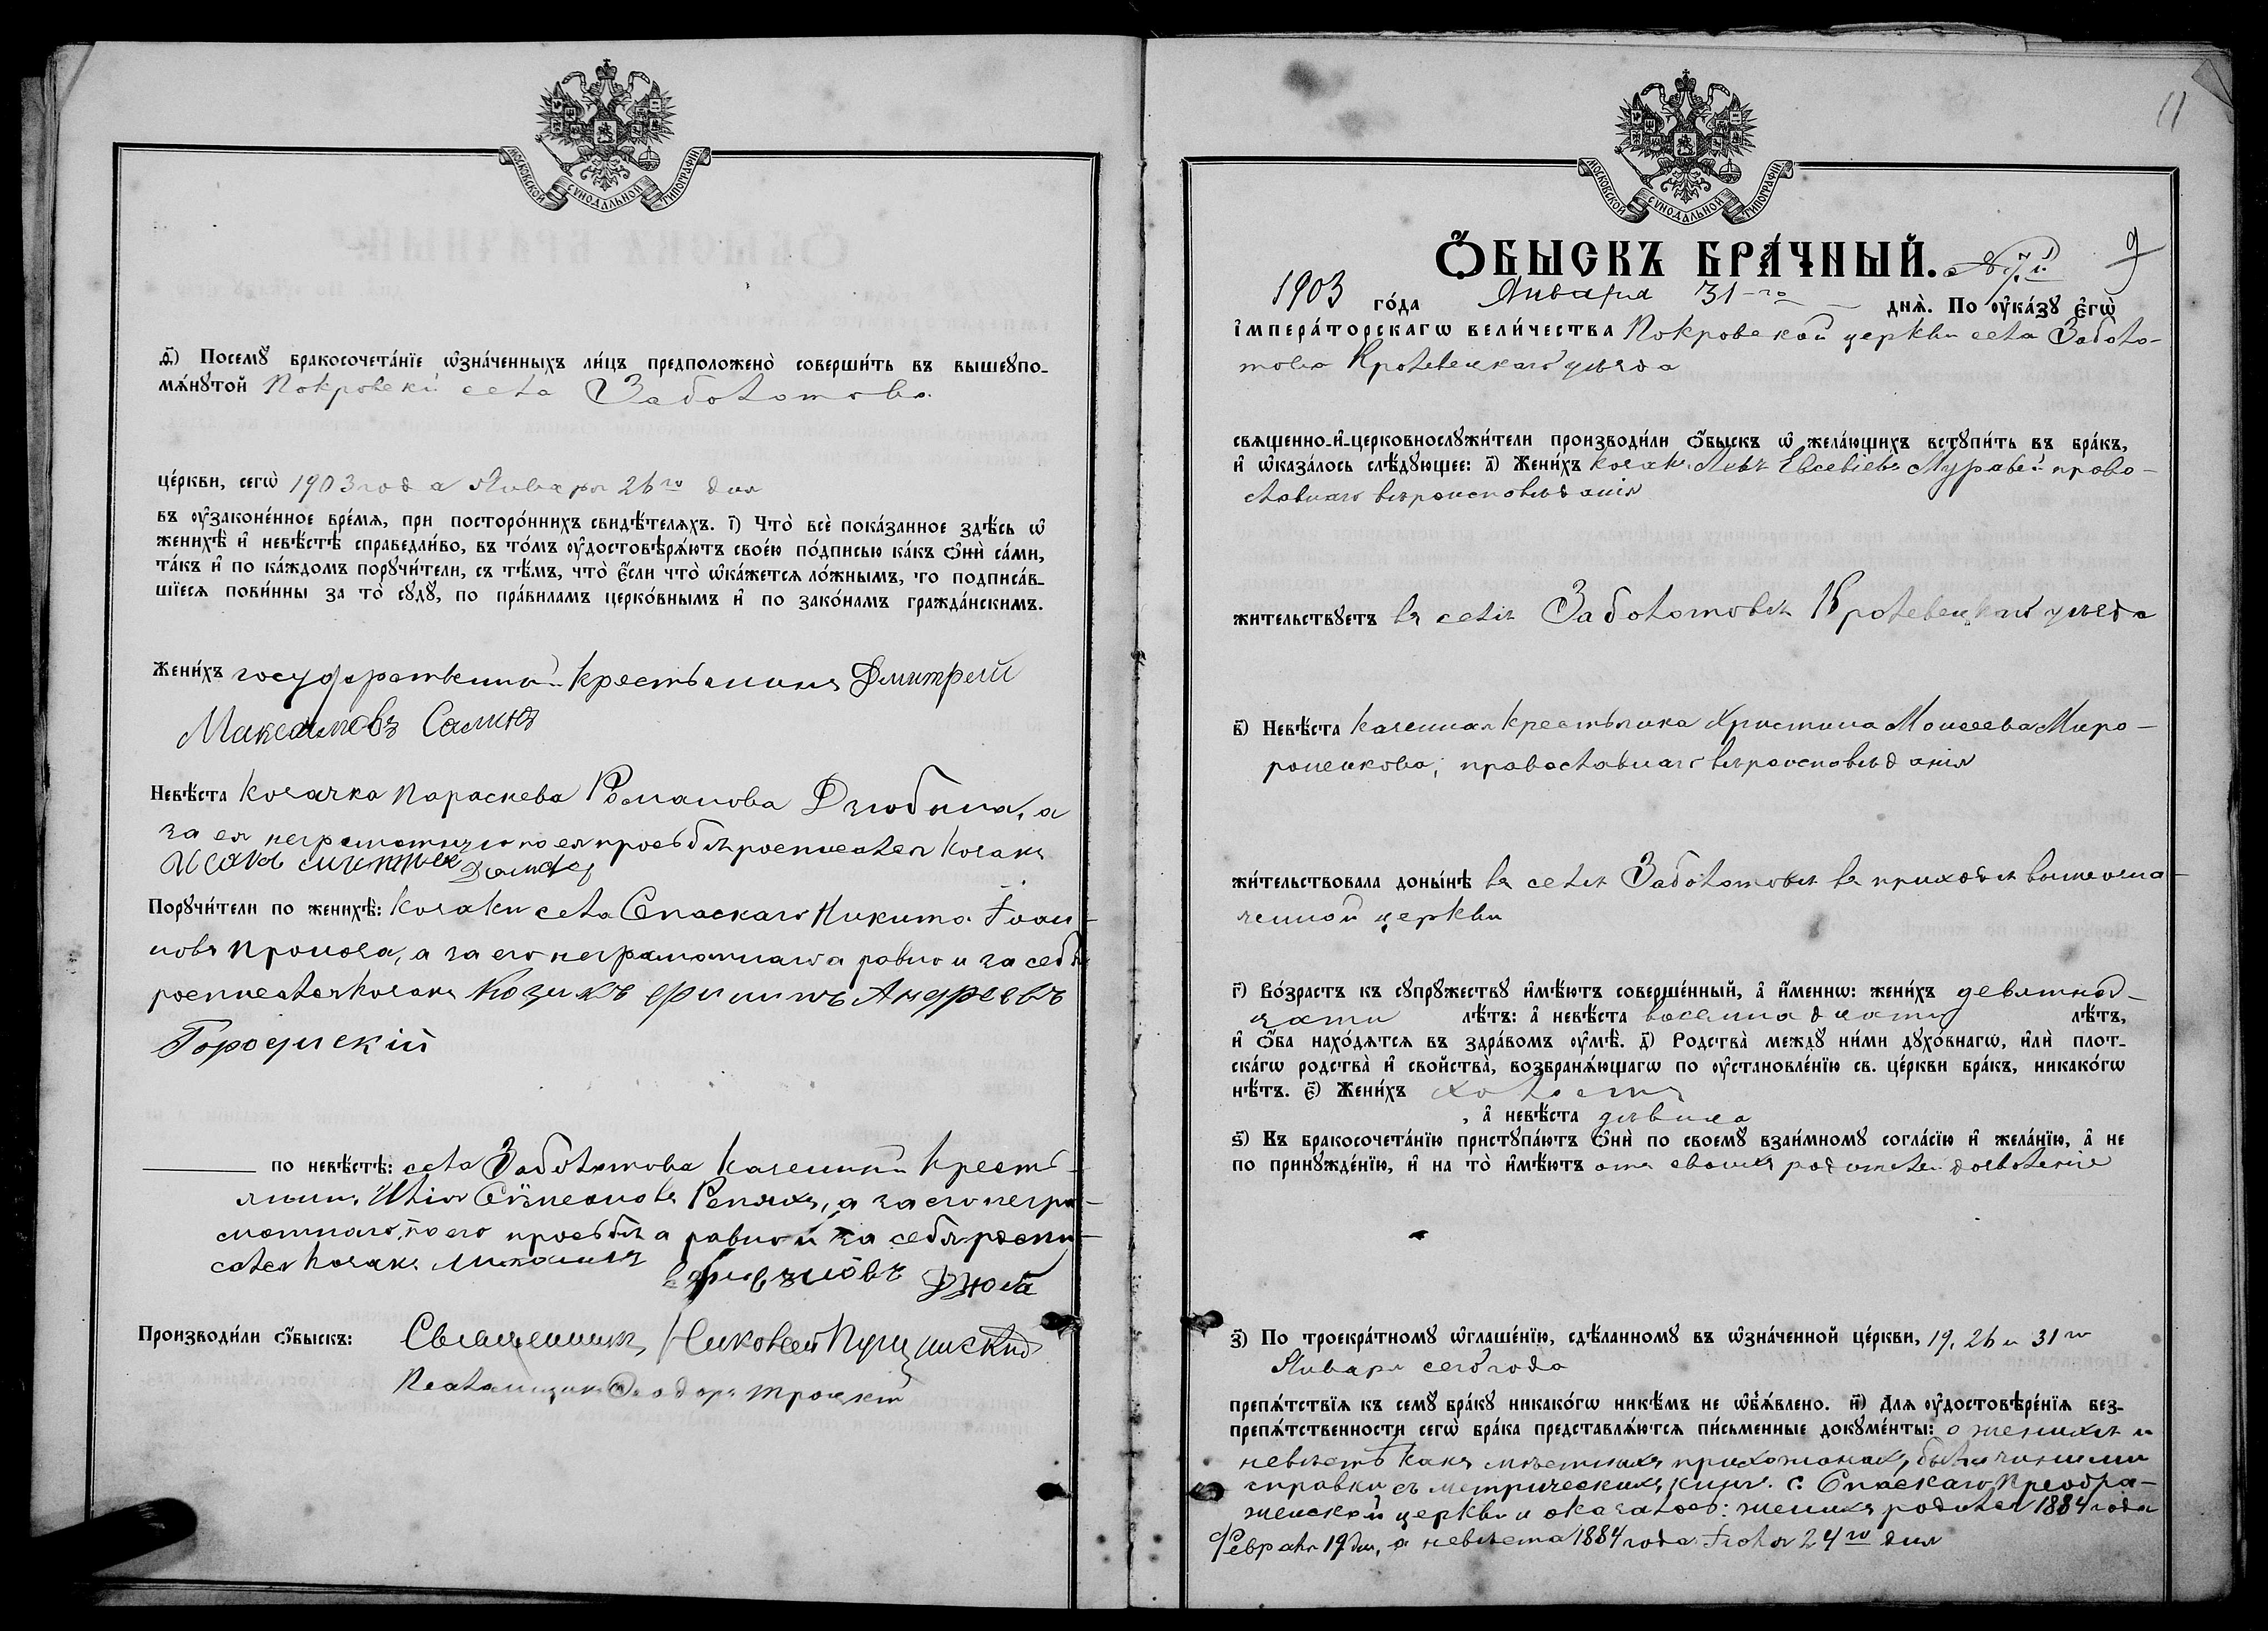 МОСКОВСКОЙ СѴНОДАЛЬНОЙ ТИПОГРАФІИ
д҃) Посемꙋ̀ бракосочета́нїе ѡ҆зна́ченныхъ ли́цъ предположено̀ соверши́ть въ вышеꙋпо-
мѧ́нꙋтой Покровской села Заболотова
це́ркви, сегѡ̀ 1903 года Января 26го дня
въ ᲂу҆законе́нное вре́мѧ, при посторо́ннихъ свидѣ́телѧхъ. і҃) Что̀ всѐ пока́занное здѣ́сь ѡ҆
женихѣ̀ и҆ невѣ́стѣ справедли́во, въ то́мъ ᲂу҆достовѣрѧ́ютъ свое́ю по́дписью ка́къ ѻ҆нѝ са́ми,
та́къ и҆ по ка́ждомъ порꙋчи́тели, съ тѣ́мъ, что̀ є҆́сли что̀ ѡ҆ка́жетсѧ ло́жнымъ, то подписа́в-
шїесѧ пови́нны за то̀ сꙋдꙋ̀, по пра́виламъ церко́внымъ и҆ по зако́намъ гражда́нскимъ.
Жени́хъ государственный крестьянинъ Дмитрий
Максимовъ Салинъ
Невѣ́ста козачка Параскева Романова Дзюбина, а
за ея неграмотную по ея просьбѣ росписался козакъ
Порꙋчи́тели по женихѣ̀: козаки села Спаскаго Никита Іоан-
новъ Проноза, а за его неграмотнаго а равно и за себя
росписался козакъ Филипъ Андреевъ
Городиский
по невѣ́стѣ: села Заболотова казенный кресть-
янинъ Илія Сѵмеоновъ Репяхъ, а за его негра-
мотнаго, по его просьбѣ а равно и за себя роспи-
сался козакъ Михаилъ Дзюба
Производи́ли ѻ҆́быскъ: Священникъ
Псаломщикъ Ѳеодоръ Троцкій
11
МОСКОВСКОЙ СѴНОДАЛЬНОЙ ТИПОГРАФІИ
Ѻ҆́БЫСКЪ БРА́ЧНЫЙ. 9
1903 го́да Января 31-го днѧ̀. По ᲂу҆ка́зꙋ є҆гѡ̀
і҆мпера́торскагѡ вели́чества Покровской церкви села Заболо-
това Кролевецкаго уѣзда
свѧщенно-и҆-церковнослꙋжи́тели производи́ли ѻ҆́быскъ ѡ҆ жела́ющихъ встꙋпи́ть въ бра́къ,
и҆ ѡ҆каза́лось слѣ́дꙋющее: а҃) Жени́хъ козакъ Левъ Евсевіевъ Муравей право-
славнаго вѣроисповѣданія
жи́тельствꙋетъ въ селѣ Заболотовѣ Кролевецкаго уѣзда
в҃) Невѣ́ста казенная крестьянка Христина Моисеева Миро-
роненкова, православнаго вѣроисповѣданія
жи́тельствовала доны́нѣ въ селѣ Заболотовѣ въ приходѣ вышеозна-
ченной церкви
г҃) Во́зрастъ къ сꙋпрꙋ́жествꙋ и҆мѣ́ютъ соверше́нный, а҆ и҆́меннѡ: жени́хъ девятнад-
цати лѣ́тъ: а҆ невѣ́ста восемнадцати лѣ́тъ,
и҆ ѻ҆́ба нахо́дѧтсѧ въ здра́вомъ ᲂу҆мѣ̀. д҃) Родства̀ междꙋ̀ ни́ми дꙋхо́внагѡ, и҆лѝ плот-
ска́гѡ родства̀ и҆ свойства̀, возбранѧ́ющагѡ по ᲂу҆становле́нїю св. це́ркви бра́къ, никако́гѡ
нѣ́тъ. є҃) Жени́хъ холостъ
, а҆ невѣ́ста дѣвица
ѕ҃) Въ бракосочета́нїю пристꙋпа́ютъ ѻ҆нѝ по своемꙋ̀ взаи́мномꙋ согла́сїю и҆ жела́нїю, а҆ не
по принꙋжде́нїю, и҆ на то̀ и҆мѣ́ютъ отъ своихъ родителей дозволеніе
з҃) По троекра́тномꙋ ѡ҆глаше́нїю, сдѣ́ланномꙋ въ ѡ҆зна́ченной це́ркви, 19, 26 и 31го
Января сего года
препѧ́тствїѧ къ семꙋ̀ бра́кꙋ никако́гѡ никѣ́мъ не ѡ҆б̾ѧ́влено. и҃) Длѧ ᲂу҆достовѣре́нїѧ без-
препѧ́тственности сегѡ̀ бра́ка представлѧ́ютсѧ пи́сьменные докꙋме́нты: о женихѣ и
невѣстѣ какъ мѣстныхъ прихожанах, были чинимы
справки съ метрическихъ книг. с. Спаскаго Преобра-
женской церкви и оказалось: женихъ родился 1884 года
Февраля 19 дня, а невѣста 1884 года Іюля 24го дня